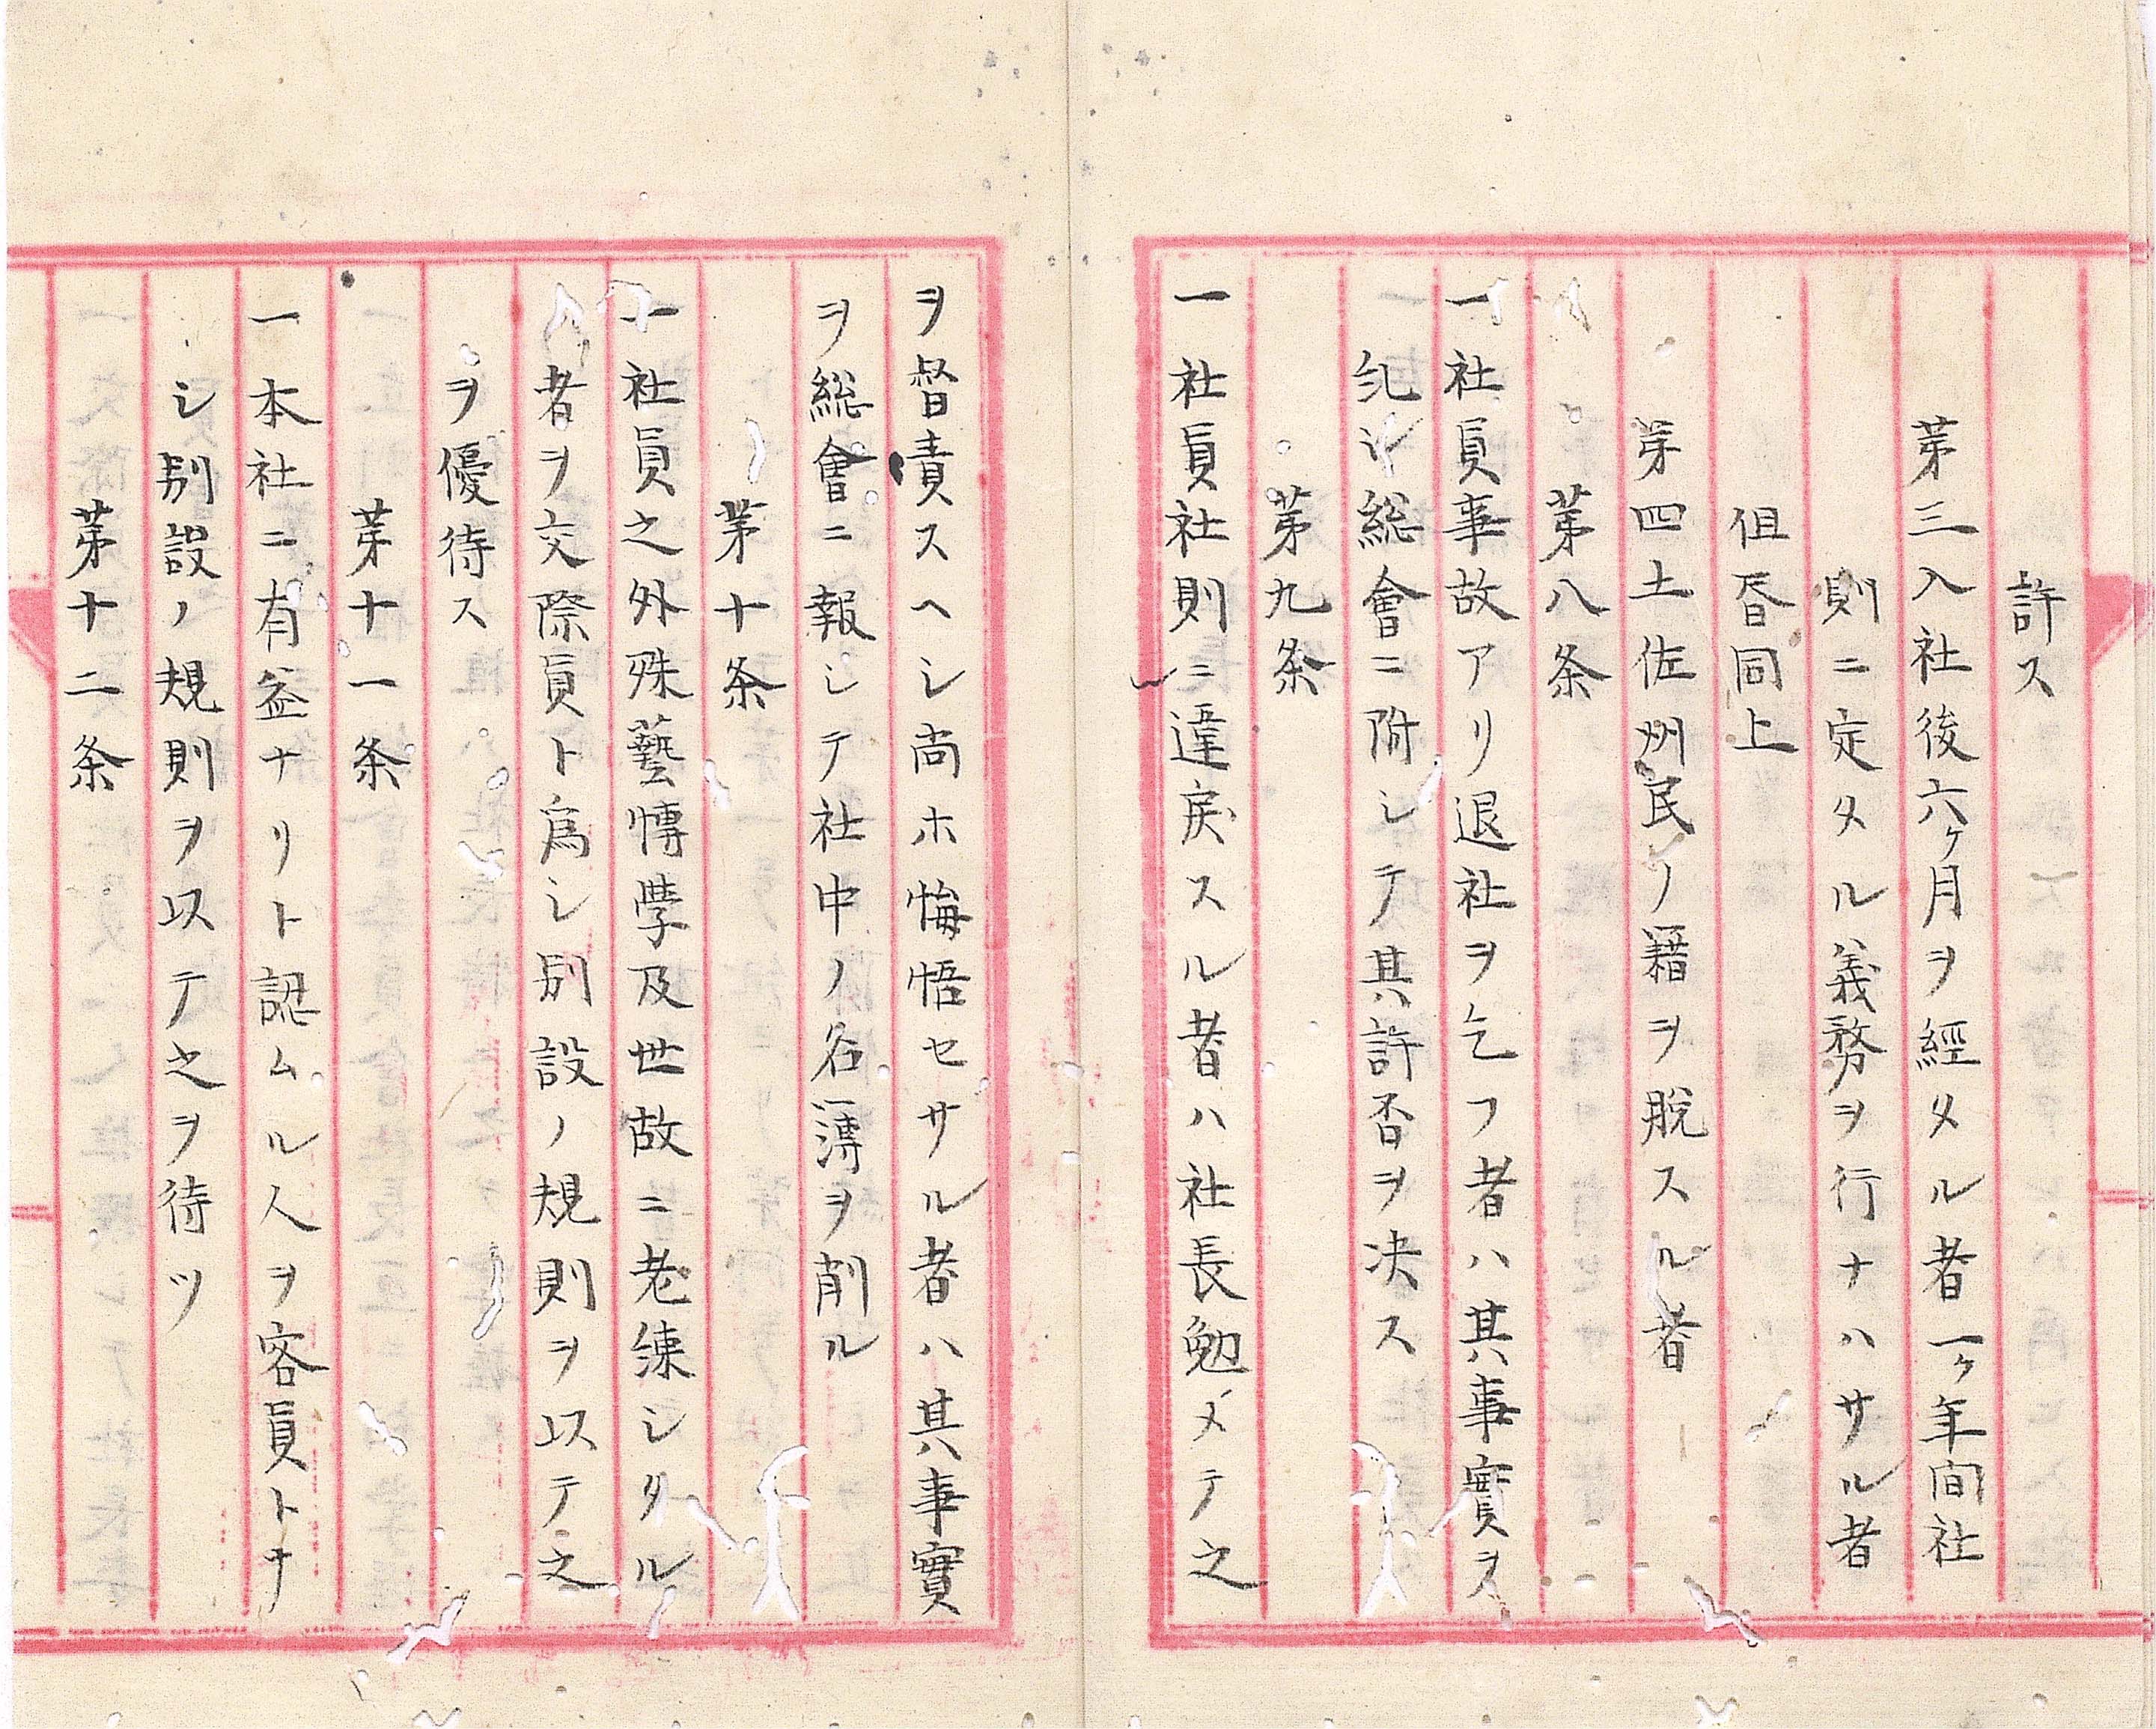 許ス
第三入社後六ヶ月ヲ經タル者一ヶ年間社
則ニ定メタル義務ヲ行ナハサル者
但昏同上
第四土佐州民ノ籍ヲ脱スル者
第八条
一社員事故アリ退社ヲ乞フ者ハ其事實ヲ
糺シ総會ニ附シテ其許否ヲ决ス
第九条
一社員社則ニ違戻スル者ハ社長勉メテ之
ヲ督責スヘシ尚ホ悔悟セサル者ハ其事實
ヲ総會ニ報シテ社中ノ名簿ヲ削ル
第十条
一社員之外殊藝博學及世故ニ老練シタル
者ヲ交際員ト爲シ別設ノ規則ヲ以テ之
ヲ優待ス
第十一条
一本社ニ有益ナリト認ムル人ヲ客員トナ
シ別設ノ規則ヲ以テ之ヲ待ツ
第十二条